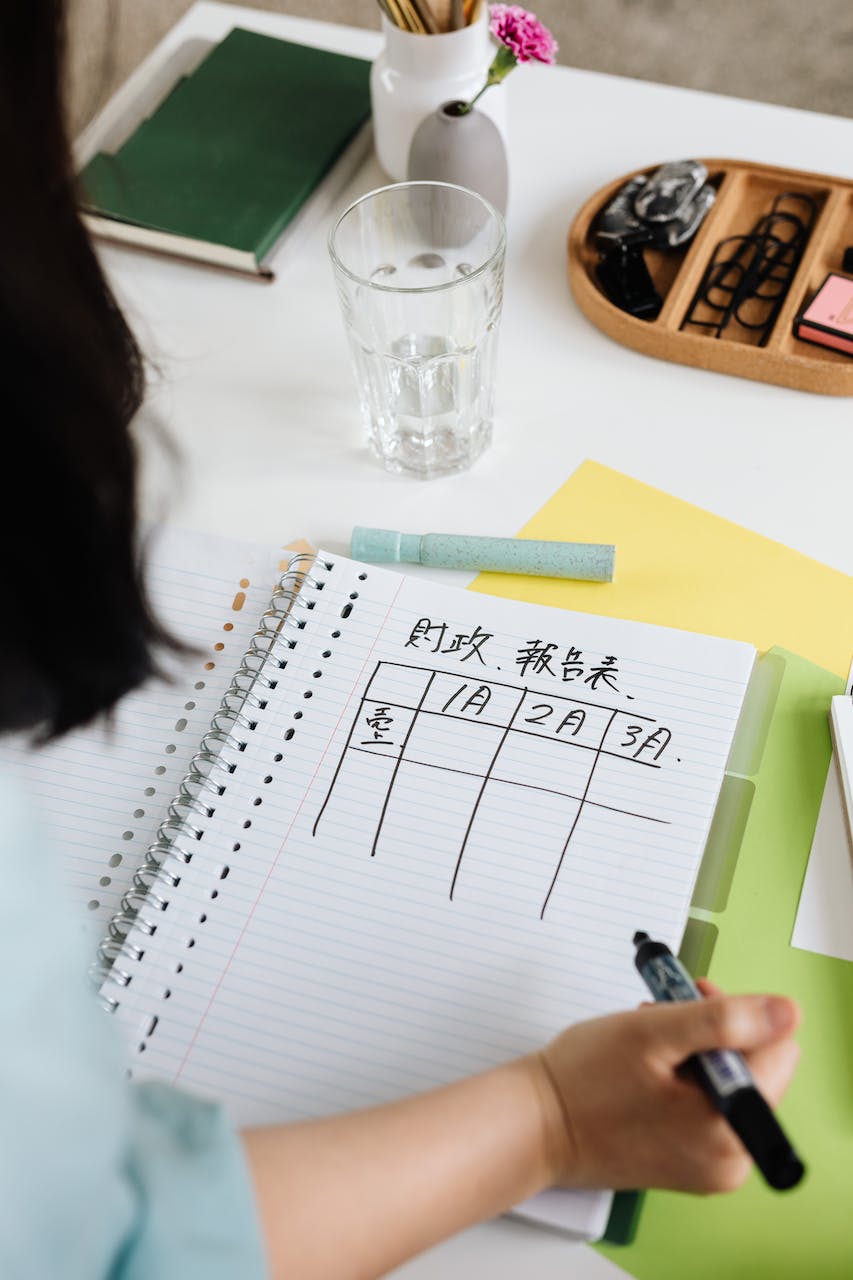 財政、報告表、
1月 2月 3月.